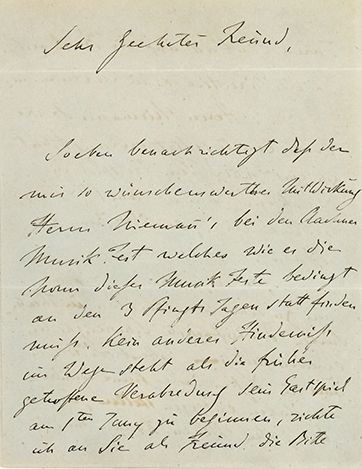 Sehr geehrter Freund,
Soeben benachrichtigt daß der
mir so wünschenswerthen Mitwirkung
Herrn Niemann's bei dem Aachner
Musik Fest welches wie es die
Norm dieser Musik Feste bedingt
an den 3 Pfingst Tagen statt finden
muß. Kein anderes Hinderniß
im Wege steht als die früher
getroffene Verabredung sein Gastspiel
am 1ten Juny zu beginnen, richte
ich an Sie als Freund die Bitte